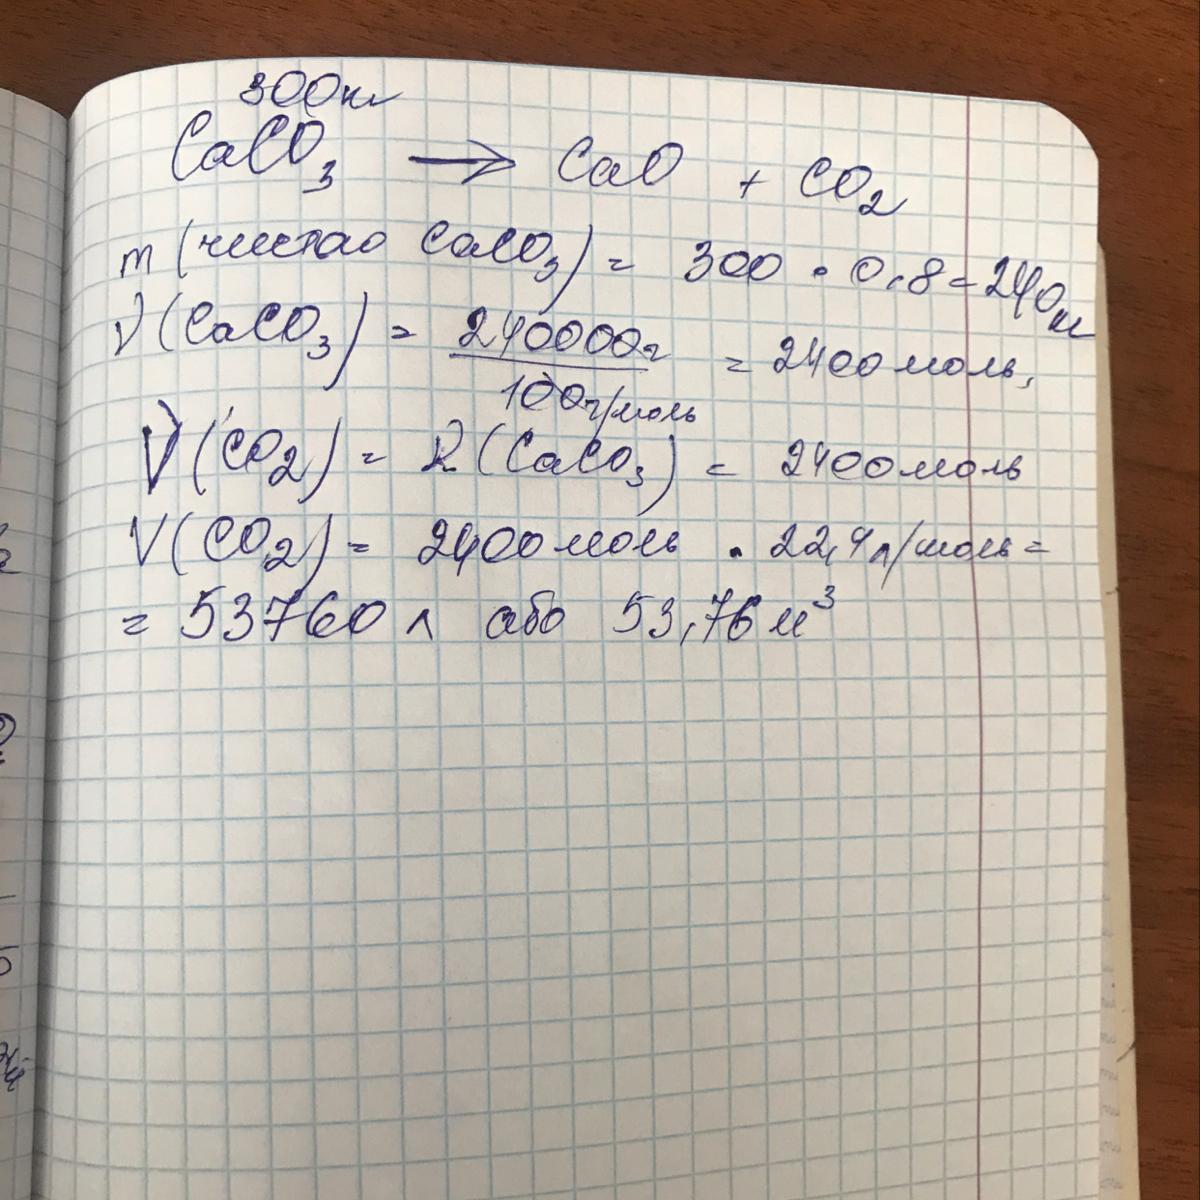 300кг
CaCO₃ → CaO + CO₂
m (чистго CaCO₃) = 300 · 0,8 = 240кг
ν (CaCO₃) = 240000г / 100г/моль = 2400 моль,
ν (CO₂) = ν (CaCO₃) = 2400 моль
V (CO₂) = 2400 моль · 22,4 л/моль =
= 53760 л або 53,76 м³